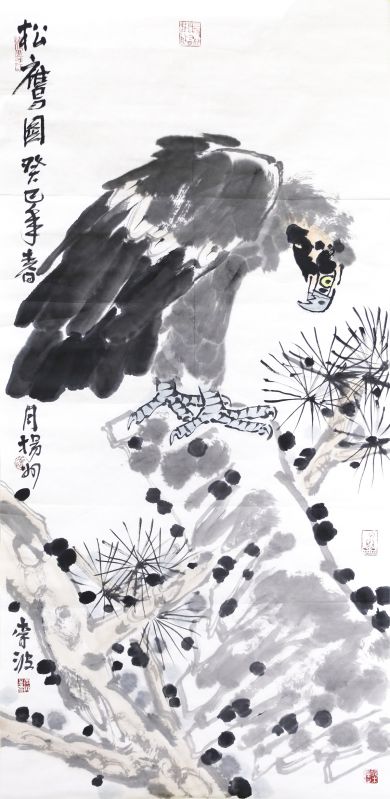 松鹰图癸巳年春
月扬州
荣波